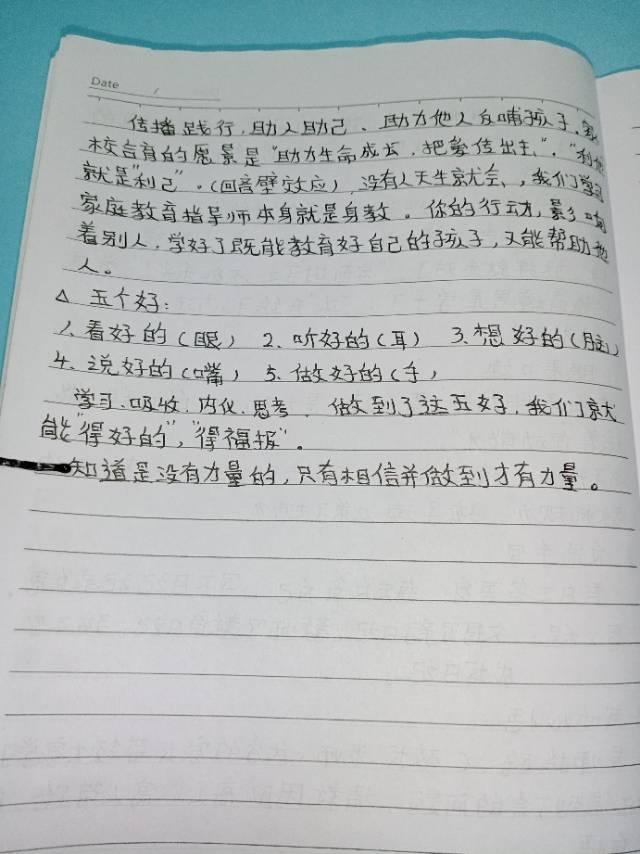 Date /
传播践行,助人助己、助力他人反哺孩子,家
校合育的愿景是"助力生命成长,把爱传出去","利他
就是"利己"。(回音壁效应),没有人天生就会,我们学习
家庭教育指导师本身就是身教。你的行动,影响
着别人,学好了既能教育好自己的孩子,又能帮助他
人。
△ 五个好:
1、看好的(眼) 2、听好的(耳) 3、想好的(脑)
4、说好的(嘴) 5、做好的(手)
学习、吸收、内化、思考、做到了这五好,我们就
能"得好的","得福报"。
知道是没有力量的,只有相信并做到才有力量。